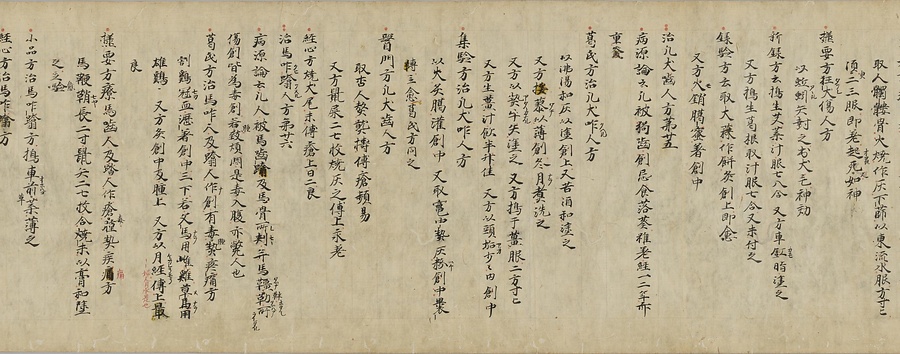 取人髑髏骨火燒作灰下篩以東流水服方寸匕
頂三服即老起死如神
攝要方狂犬傷人方
以蚯蚓矢封之出犬毛神効
新錄方云搗生艾茶汁服七八合 又方車釭脂塗之
又方搗生葛根取汁服七合又末付之
錄驗方云取大蒜作餅灸創上即愈
又方火銷臈蜜著創中
治凡犬嚙人方第十五
病源論云凡被狗齒創忌食落葵雖老經一二年亦
重發
葛氏方治凡犬咋人方
以沸湯和灰以塗創上又苦酒和塗之
又方搗薤以薄創 又方煮洗之
又方以熱牛矢塗之 又方搗干薑服二方寸匕
又方生薑汁飲半升佳 又方以頭垢少々内創中
集驗方治凡犬咋人方
以火灸臈灌創中 又取竈中熱灰粉創中裹
轉之愈葛氏方同之
醫門方凡犬齒人方
取杏人熬研傅瘡頻易
又方鼠矢二七枚燒灰之傅上永老
經心方燒犬尾末傅瘡上日二良
治馬咋踏人方第十六
病源論云凡人被馬齒踏及馬骨所刺并馬鞿勒所
傷創皆為毒創若殺煩悶是毒入腹亦斃人也
葛氏方治馬咋人及踏人作創有毒熱疼痛方
割鷄冠血瀝著創中三下若父馬用雌雞草馬用
雄鷄 又方灸創中及腫上 又方以月經傅上最
良
攝要方療馬齒人及踏人作瘡毒熱疾痛方
馬鞭鞘長二寸鼠矢二七枚合燒末以膏和塗
之之驗
小品方治馬咋踏方搗車前草薄之
經心方治馬咋踏方